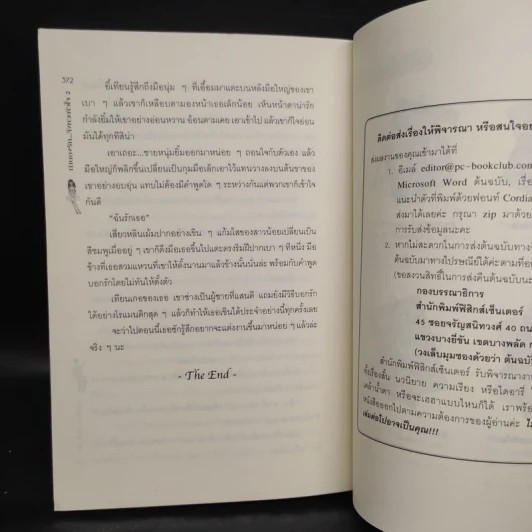 372
อี้เทียนรู้สึกถึงมือนุ่ม ๆ ที่เอื้อมมาแตะบนหลังมือใหญ่ของเขา
เบา ๆ แล้วเขาก็เหลือบตามองหน้าเธอเล็กน้อย เห็นหน้าตาน่ารัก
กำลังยิ้มให้เขาอย่างอ่อนหวาน อ้อนตามเคย เอาเข้าไป แล้วเขาก็ใจอ่อน
มันได้ทุกทีสิน่า
เอาเถอะ...ชายหนุ่มยิ้มออกมาน้อย ๆ ถอนใจกับตัวเอง แล้ว
มือใหญ่ก็พลิกขึ้นเปลี่ยนเป็นกุมมือเล็กเอาไว้แทนวางลงบนต้นขาของ
เขาอย่างอบอุ่น แทบไม่ต้องมีคำพูดใด ๆ ระหว่างกันแต่พวกเขาก็เข้าใจ
กันดี
"ฉันรักเธอ"
เสี่ยวหลินเม้มปากอย่างเขิน ๆ แก้มใสของสาวน้อยเปลี่ยนเป็น
สีชมพูเมื่ออยู่ ๆ เขาก็ดึงมือเธอขึ้นไปแตะตรงริมฝีปากเบา ๆ ทีหนึ่ง มือ
ข้างที่เธอสวมแหวนที่เขาให้ตั้งนานมาแล้วข้างนั้นนั่นล่ะ พร้อมกับคำพูด
บอกรักโดยไม่ทันให้ตั้งตัว
เทียนเกอของเธอ เขาช่างเป็นผู้ชายที่แสนดี แถมยังมีวิธีบอกรัก
ได้อย่างโรแมนติกสุด ๆ แล้วก็ทำให้เธอเขินได้ประจำอย่างนี้ทุกครั้งเลย
จะว่าไปตอนนี้เธอชักรู้สึกอยากจะแต่งงานขึ้นมาหน่อย ๆ แล้วล่ะ
จริง ๆ นะ
- The End -
ติดต่อส่งเรื่องให้พิจารณา หรือสนใจอย
ส่งผลงานของคุณเข้ามาได้ที่
1. อีเมล์ editor@pc-bookclub.com
Microsoft Word ต้นฉบับ, เรื่อ
แนะนำตัวที่พิมพ์ด้วยฟอนท์ Cordia
ส่งมาได้เลยค่ะ กรุณา zip มาด้วย
การรับส่งข้อมูลนะคะ
2. หากไม่สะดวกในการส่งต้นฉบับทาง
ต้นฉบับมาทางไปรษณีย์ได้ค่ะตามที่อ
(ขอสงวนสิทธิ์ในการส่งคืนต้นฉบับนะ
กองบรรณาธิการ
สำนักพิมพ์ฟิสิกส์เซ็นเตอร์
45 ซอยจรัญสนิทวงศ์ 40 ถน
แขวงบางยี่ขัน เขตบางพลัด ก
(วงเล็บมุมซองด้วยว่า ต้นฉบั
สำนักพิมพ์ฟิสิกส์เซ็นเตอร์ รับพิจารณางาน
ทั้งเรื่องสั้น นวนิยาย ความเรียง หรือไดอารี่
เคล้าน้ำตา หรือจะเฮฮาแบบไหนก็ได้ เราพร้อ
หนังสือออกไปตามความต้องการของผู้อ่านค่ะ ไ
เล่มต่อไปอาจเป็นคุณ!!!